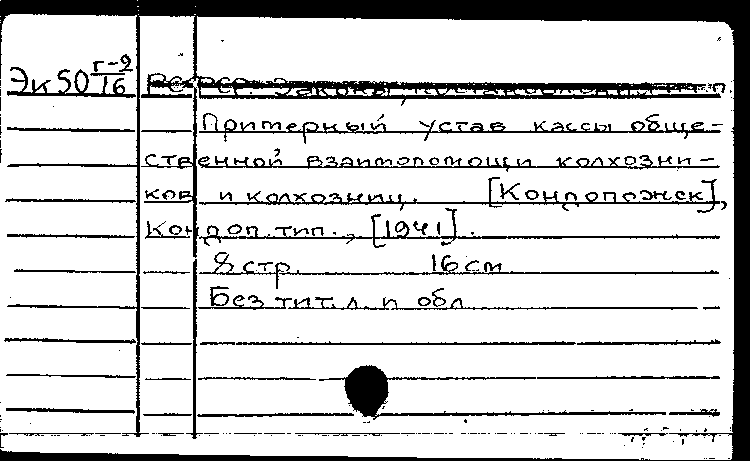 Эк50 г-9/16 РСФСР. Законы, постановления и т.п.
Примерный устав кассы обще-
ственной взаимопомощи колхозни-
ков и колхозниц. [Кондопожск],
Кондоп. тип., [1941].
8 стр. 16 см
Без тит. л. и обл.